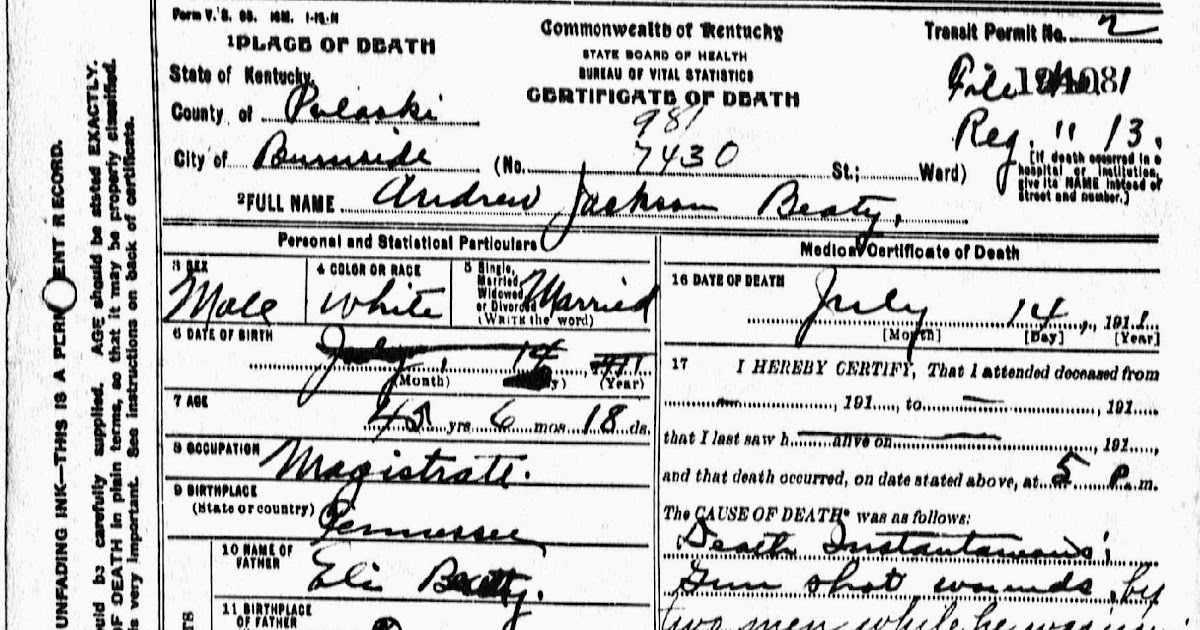 Form V. S. 98. 10M. 1-12-11
Commonwealth of Kentucky
Transit Permit No. 2
1 PLACE OF DEATH
STATE BOARD OF HEALTH
State of Kentucky,
BUREAU OF VITAL STATISTICS
File
County of Pulaski
CERTIFICATE OF DEATH
981
Reg. " 13.
City of Burnside (No. 7430 St.; Ward)
[If death occurred in a
hospital or institution,
give its NAME instead of
street and number.]
2 FULL NAME Andrew Jackson Beaty,
Personal and Statistical Particulars
Medical Certificate of Death
3 SEX
Male
4 COLOR OR RACE
White
5 Single,
Married,
Widowed
or Divorced
(WRITE the word)
Married
16 DATE OF DEATH
July 14, 1911.
[Month] [Day] [Year]
6 DATE OF BIRTH
July, 14
(Month) (Year)
17 I HEREBY CERTIFY, That I attended deceased from
, 191 , to , 191
7 AGE
45 yrs. 6 mos. 18 ds.
that I last saw h alive on , 191 ,
8 OCCUPATION Magistrate.
and that death occurred, on date stated above, at 5 P. m.
9 BIRTHPLACE
(State or country) Tennessee
The CAUSE OF DEATH* was as follows:
Death Instantaneous;
10 NAME OF
FATHER Eli Beatty.
Gun shot wounds by
11 BIRTHPLACE
OF FATHER
two men while he was in
UNFADING INK—THIS IS A PERM ENT RECORD.
ould be carefully supplied. AGE should be stated EXACTLY.
OF DEATH in plain terms, so that it may be properly classified.
is very important. See instructions on back of certificate.